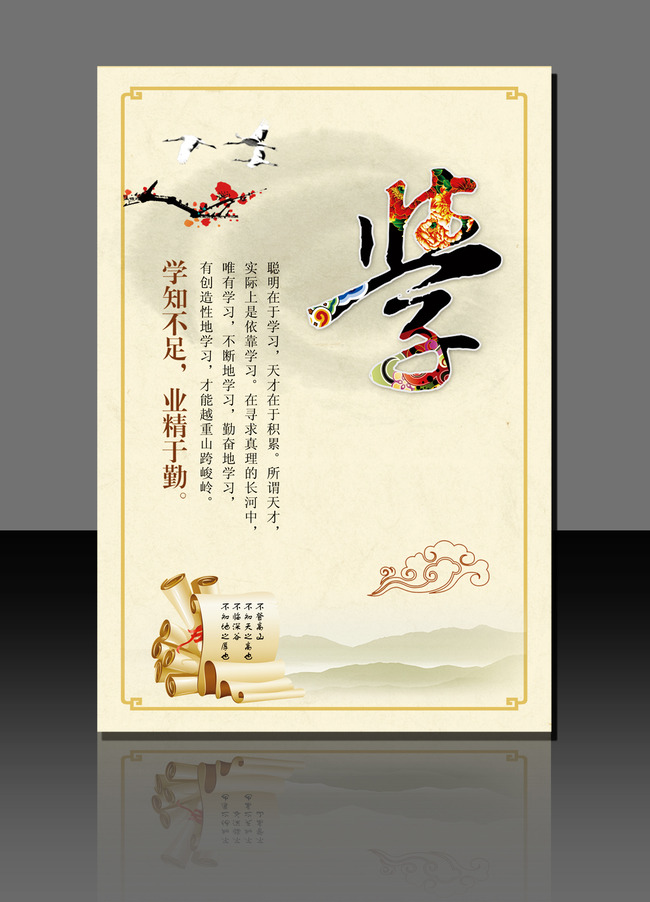 學
聪明在于学习，天才在于积累。所谓天才，
实际上是依靠学习。在寻求真理的长河中，
唯有学习，不断地学习，勤奋地学习，
有创造性地学习，才能越重山跨峻岭。
学知不足，业精于勤。
不登高山
不知天之高也
不临深谷
不知地之厚也